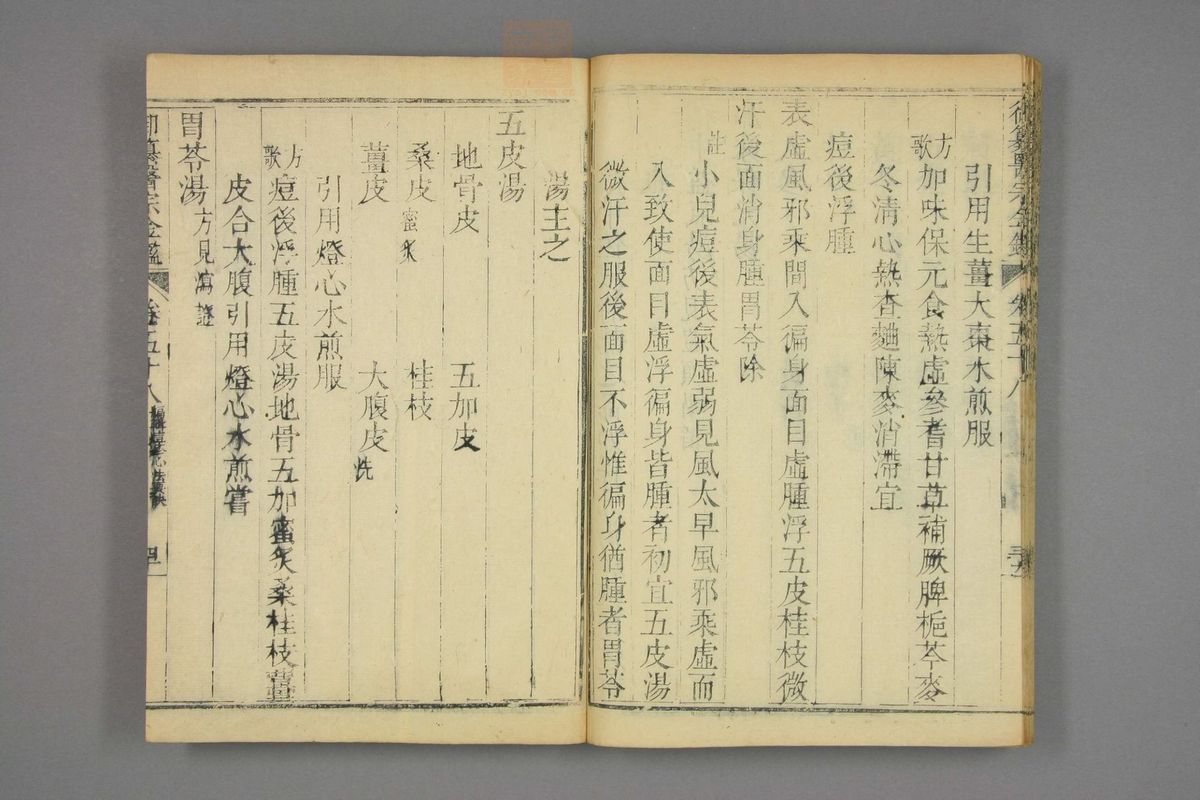 引用生薑大棗水煎服
方歌 加味保元食熱虛參耆甘草補厥脾梔芩麥
冬清心熱查麯陳麥消滯宜
痘後浮腫
表虛風邪乘間入徧身面目虛腫浮五皮桂枝微
汗後面消身腫胃苓除
註 小兒痘後表氣虛弱見風太早風邪乘虛而
入致使面目虛浮徧身皆腫者初宜五皮湯
微汗之服後面目不浮惟徧身猶腫者胃苓
湯主之
五皮湯
地骨皮 五加皮
桑皮 蜜炙 桂枝
薑皮 大腹皮 洗
引用燈心水煎服
方歌 痘後浮腫五皮湯地骨五加蜜炙桑桂枝薑
皮合大腹引用燈心水煎嘗
胃苓湯 方見瀉
御纂醫宗金鑑 卷五十八 編輯痘疹心法要訣